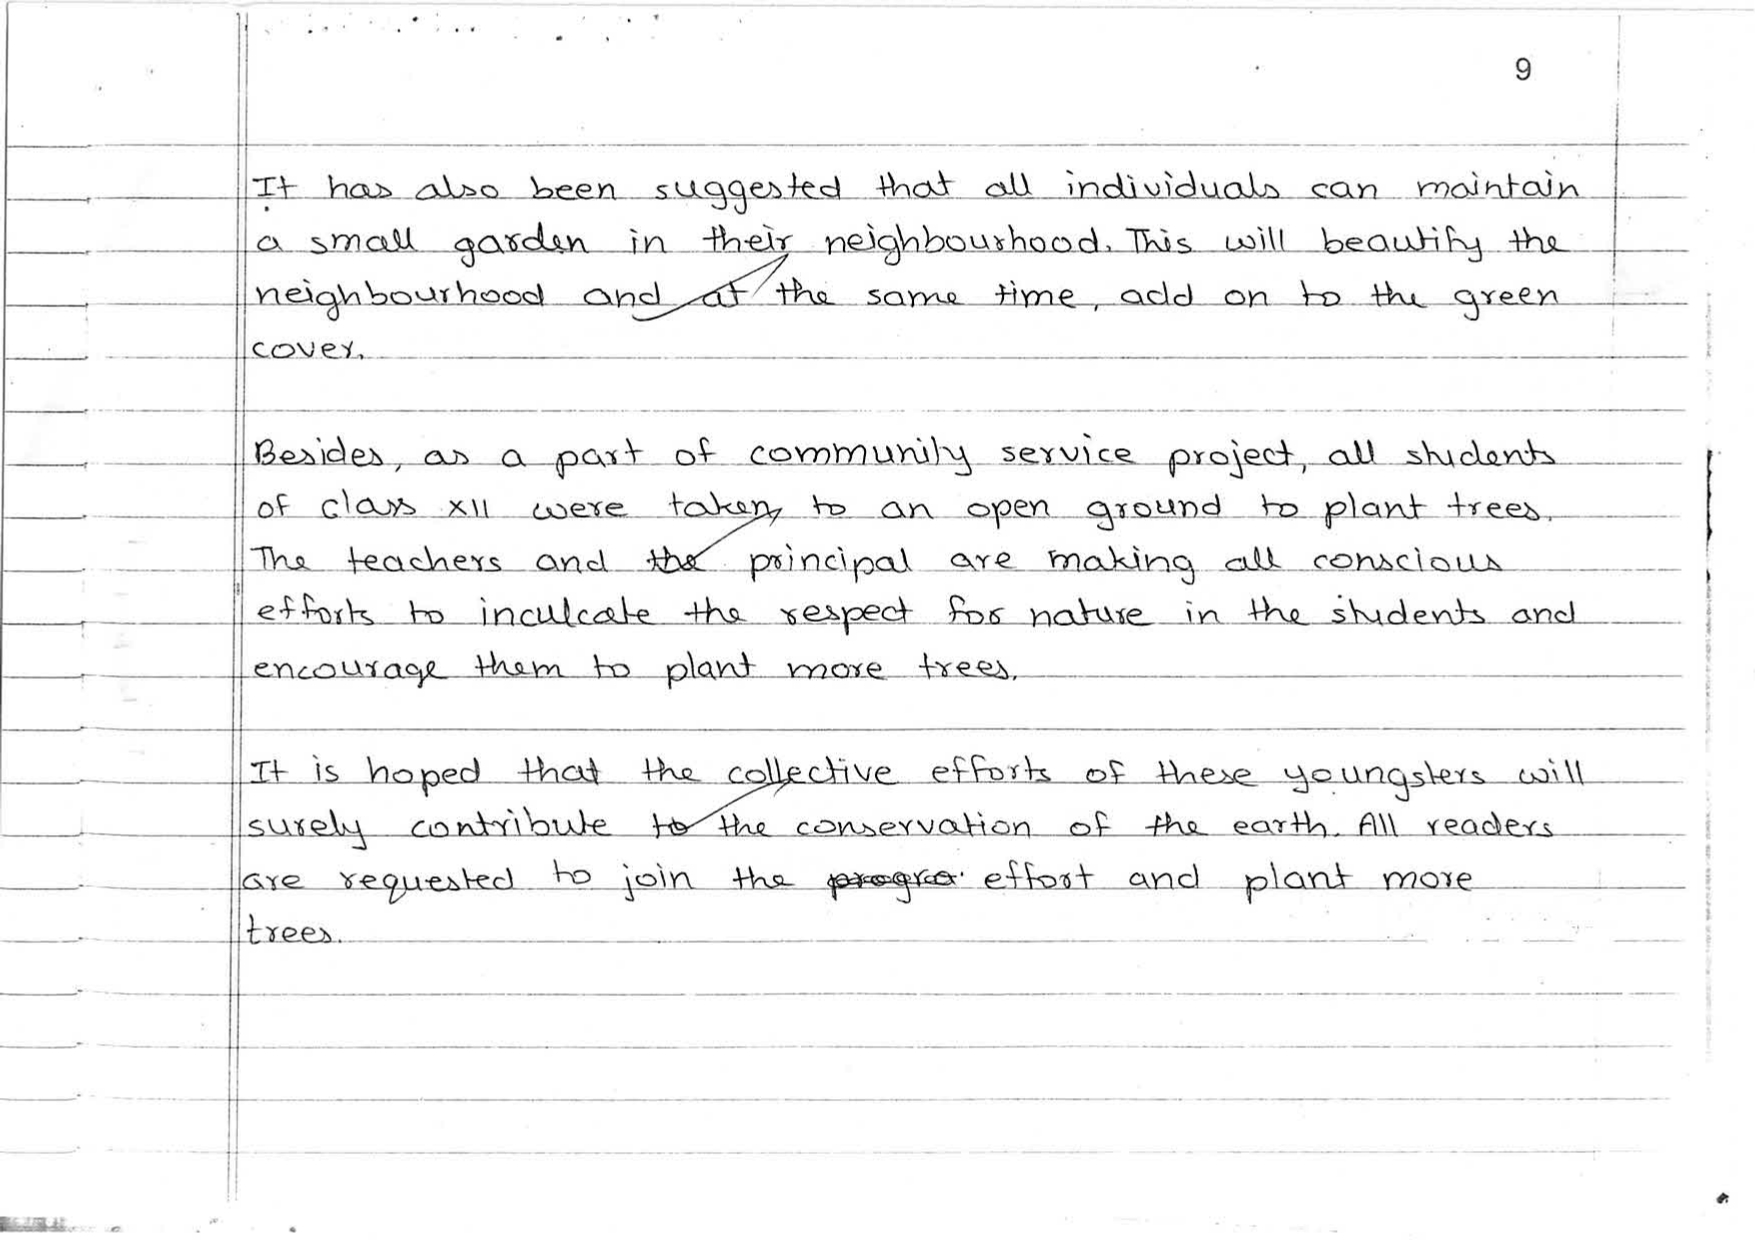 9
It has also been suggested that all individuals can maintain
a small garden in their neighbourhood. This will beautify the
neighbourhood and at the same time, add on to the green
cover.
Besides, as a part of community service project, all students
of class XII were taken to an open ground to plant trees.
The teachers and the principal are making all conscious
efforts to inculcate the respect for nature in the students and
encourage them to plant more trees.
It is hoped that the collective efforts of these youngsters will
surely contribute to the conservation of the earth. All readers
are requested to join the progra effort and plant more
trees.